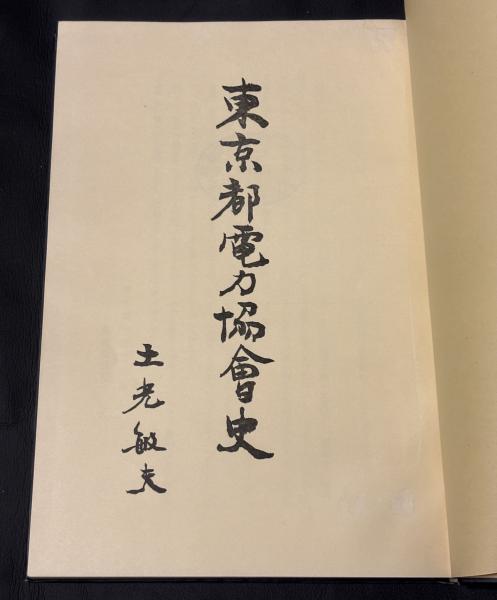 東京都電力協會史
土光敏夫